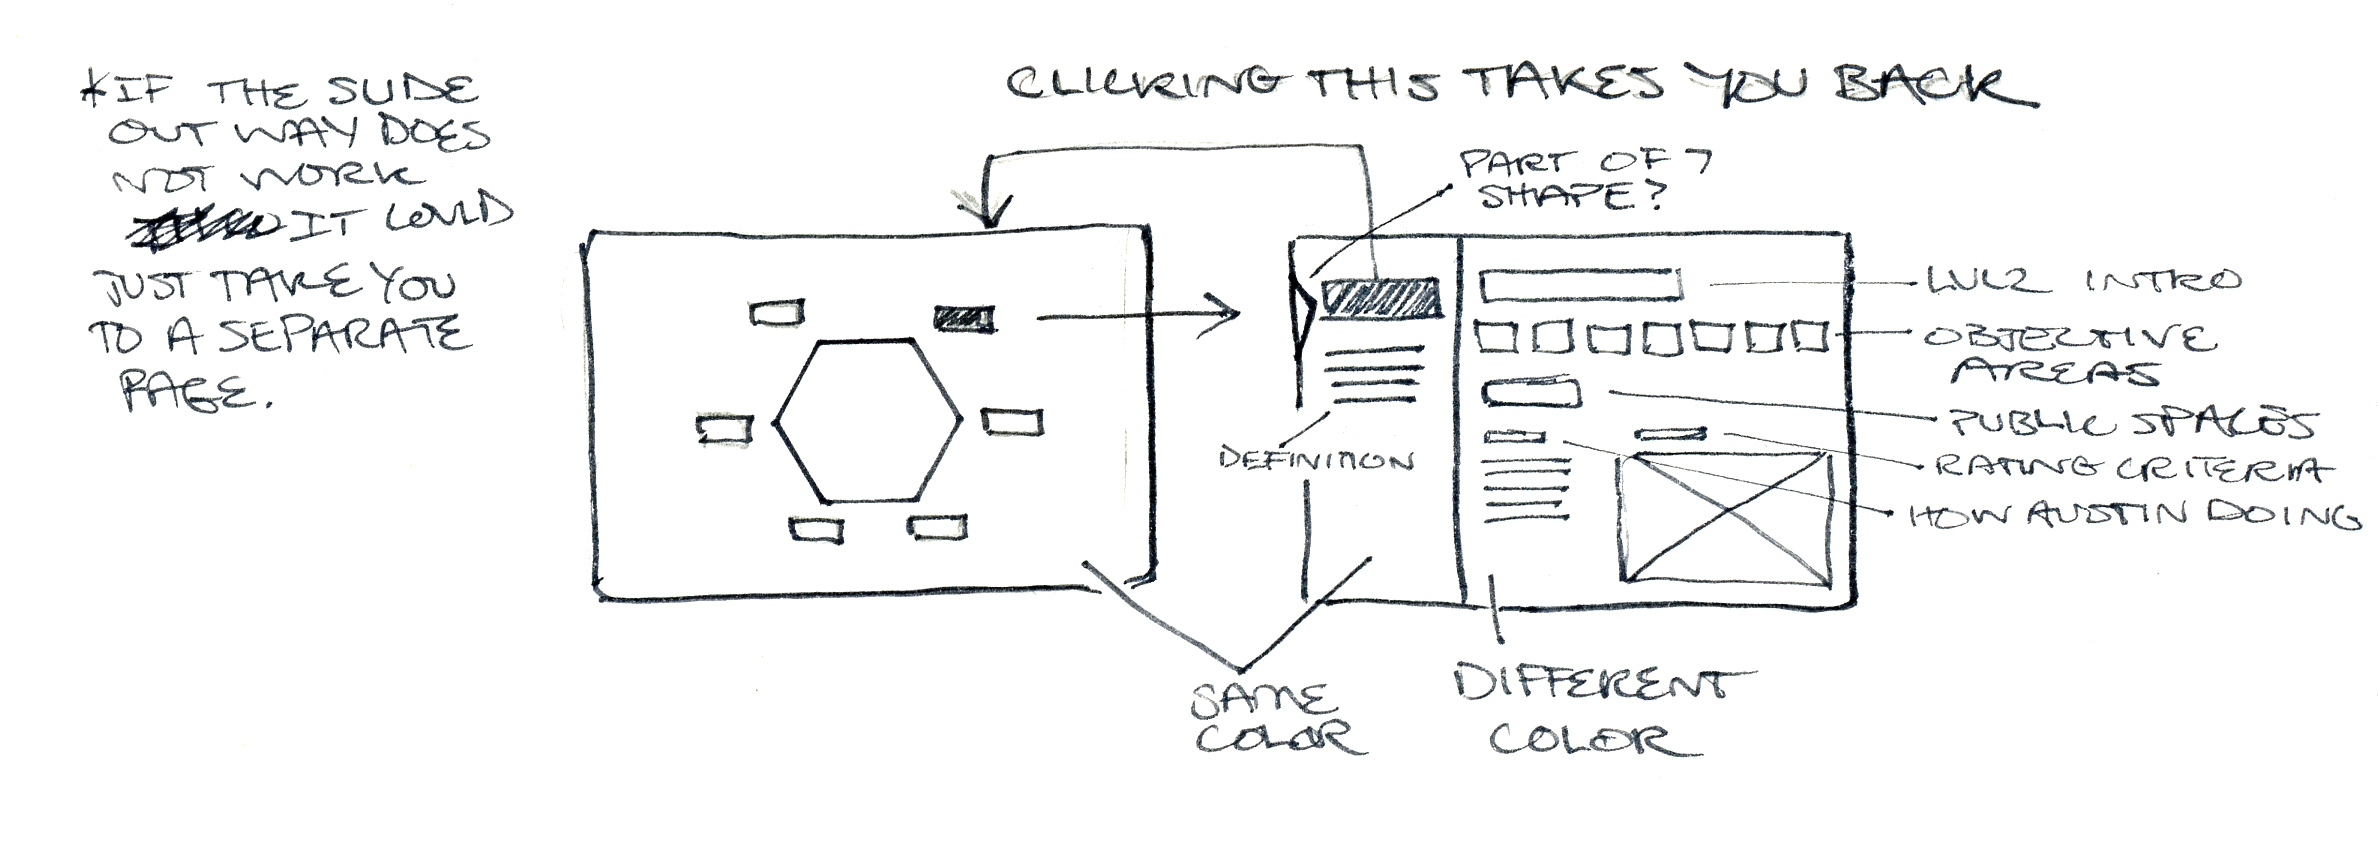 *IF THE SLIDE
OUT WAY DOES
NOT WORK
IT COULD
JUST TAKE YOU
TO A SEPARATE
PAGE.
CLICKING THIS TAKES YOU BACK
PART OF 7
SHAPE?
LVL2 INTRO
OBJECTIVE
AREAS
PUBLIC SPACES
RATING CRITERIA
HOW AUSTIN DOING
DEFINITION
SAME
COLOR
DIFFERENT
COLOR